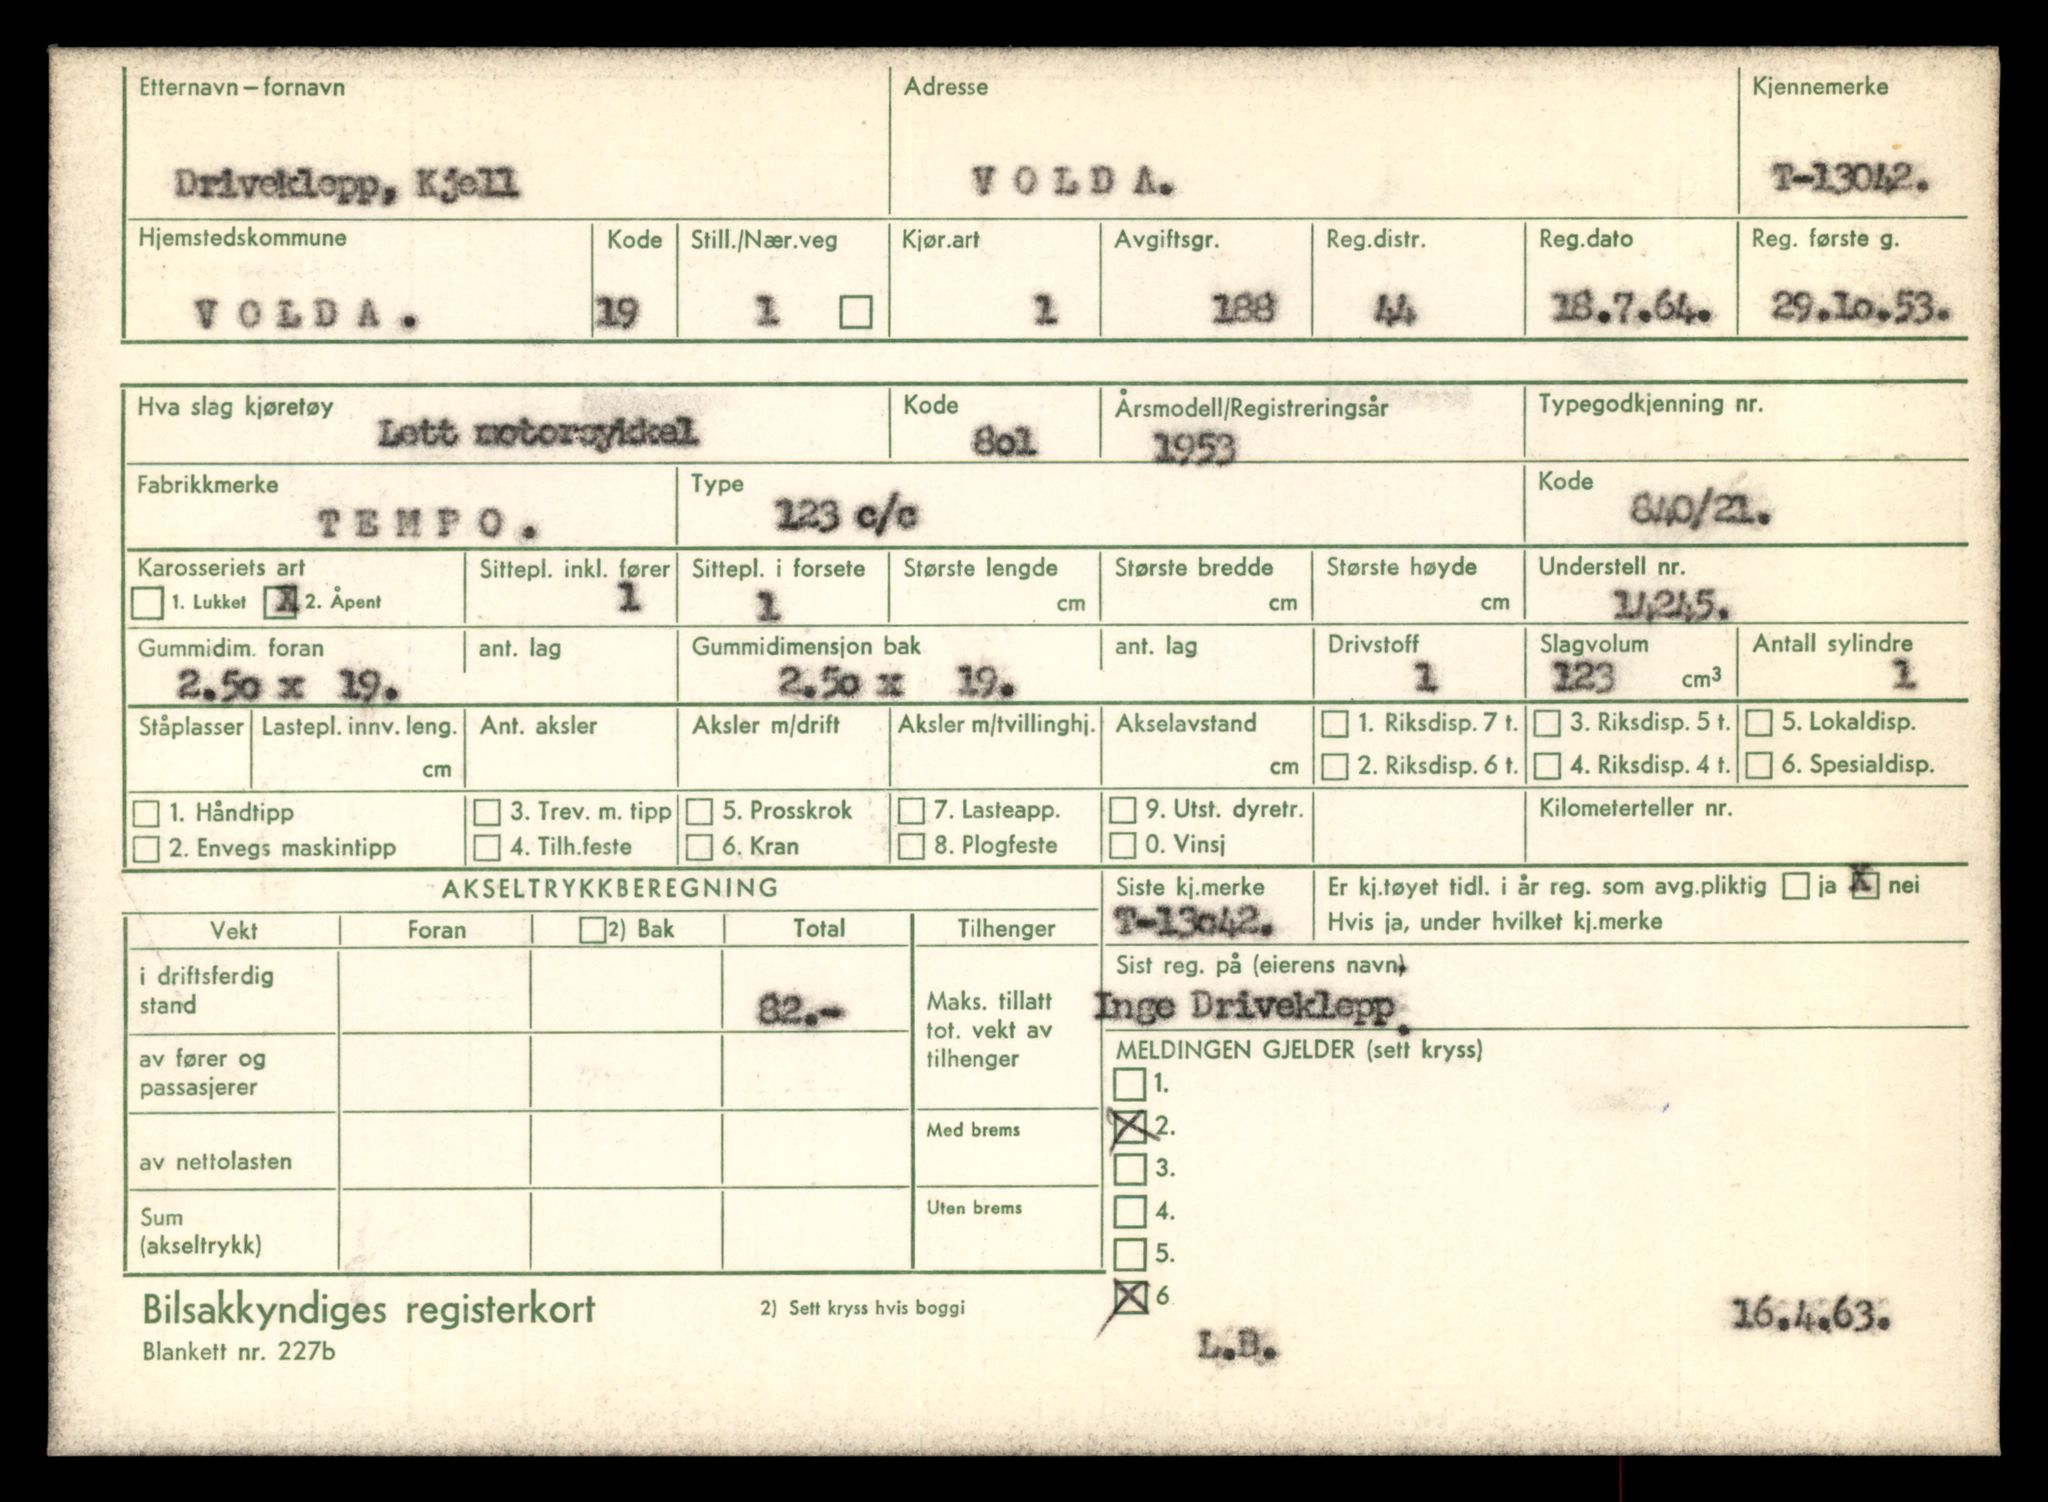 Etternavn – fornavn Adresse Kjennemerke
Driveklepp, Kjell V O L D A. T-13042.
Hjemstedskommune Kode Still./Nær.veg Kjør.art Avgiftsgr. Reg.distr. Reg.dato Reg. første g.
V O L D A . 19 1 1 188 44 18.7.64. 29.1o.53.
Hva slag kjøretøy Kode Årsmodell/Registreringsår Typegodkjenning nr.
Lett motorsykkel 8o1 1953
Fabrikkmerke Type Kode
T E M P O . 123 c/c 840/21.
Karosseriets art Sittepl. inkl. fører Sittepl. i forsete Største lengde Største bredde Største høyde Understell nr.
1. Lukket X 2. Åpent 1 1 cm cm cm 14245.
Gummidim. foran ant. lag Gummidimensjon bak ant. lag Drivstoff Slagvolum Antall sylindre
2.5o x 19. 2.5o x 19. 1 123 cm³ 1
Ståplasser Lastepl. innv. leng. Ant. aksler Aksler m/drift Aksler m/tvillinghj. Akselavstand 1. Riksdisp. 7 t. 3. Riksdisp. 5 t. 5. Lokaldisp.
cm cm 2. Riksdisp. 6 t. 4. Riksdisp. 4 t. 6. Spesialdisp.
1. Håndtipp 3. Trev. m. tipp 5. Prosskrok 7. Lasteapp. 9. Utst. dyretr. Kilometerteller nr.
2. Envegs maskintipp 4. Tilh.feste 6. Kran 8. Plogfeste 0. Vinsj
AKSELTRYKKBEREGNING Siste kj.merke Er kj.tøyet tidl. i år reg. som avg.pliktig ja X nei
T-13o42. Hvis ja, under hvilket kj.merke
Vekt Foran 2) Bak Total Tilhenger
Sist reg. på (eierens navn)
i driftsferdig
stand 82.- Maks. tillatt Inge Driveklepp.
tot. vekt av
tilhenger MELDINGEN GJELDER (sett kryss)
av fører og
passasjerer 1.
Med brems X 2.
av nettolasten 3.
Uten brems 4.
Sum
(akseltrykk) 5.
Bilsakkyndiges registerkort 2) Sett kryss hvis boggi X 6 16.4.63.
Blankett nr. 227b L.B.